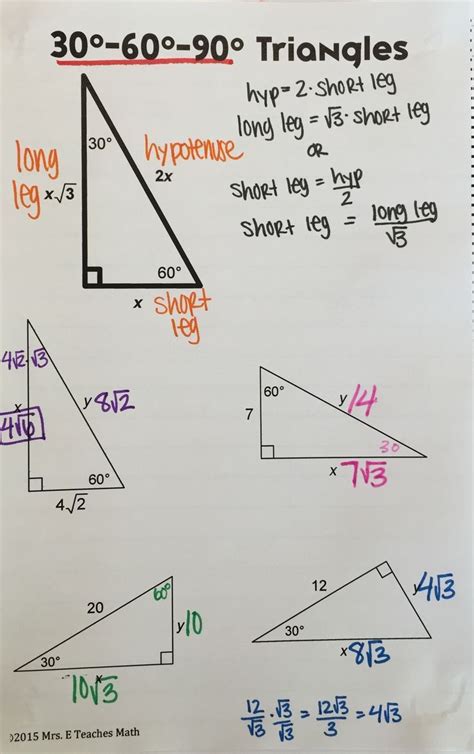 30°-60°-90° Triangles
hyp = 2 · short leg
long leg = √3 · short leg
OR
short leg = hyp/2
short leg = long leg/√3
30°
long
leg x√3
hypotenuse
2x
60°
x short
leg
4√2 √3
x
4√6
y 8√2
60°
4√2
60°
7
y 14
30
x
7√3
20
60°
y 10
30°
x
10√3
12
y 4√3
30°
x 8√3
12/√3 · √3/√3 = 12√3/3 = 4√3
©2015 Mrs. E Teaches Math